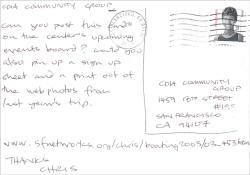 CDA COMMUNITY GROUP
Can you post this card
on the center's upcoming
events board? Could you
also pin up a sign up
sheet and a print out of
the web photos from
last year's trip.
www.sfnetworks.org/chris/boating2003/03
THANKS
CHRIS
COMMUNITY
GROUP
1459 18TH STREET
SAN FRANCISCO
CA 94107